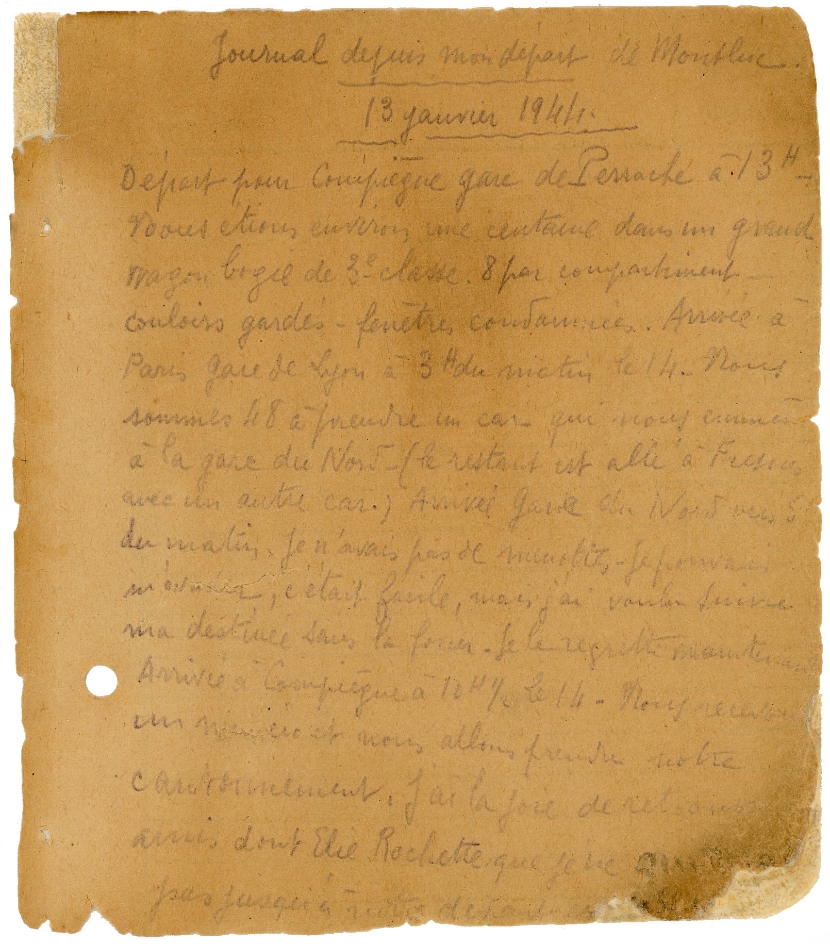 Journal depuis mon départ de Montluc.
13 janvier 1944.
Départ pour Compiègne gare de Perrache à 13H –
Nous etions environ une centaine dans un grand
wagon bogie de 3e classe. 8 par compartiment –
couloirs gardés – fenêtres condamnées. Arrivée à
Paris gare de Lyon à 3H du matin le 14 – Nous
sommes 48 à prendre un car qui nous emmène
à la gare du Nord – (le restant est allé à Fresnes
avec un autre car.) Arrivée Gare du Nord vers 5
du matin. Je n'avais pas de menottes – Je pouvais
m'évader, c'était facile, mais j'ai voulu suivre
ma destinée sans la forcer. Je le regrette maintenant
Arrivée à Compiègne à le 14 – Nous recevons
un numéro et nous allons prendre notre
cantonnement. J'ai la joie de retrouver
amis dont Elie Rochette que je ne
pas jusqu'à notre départ